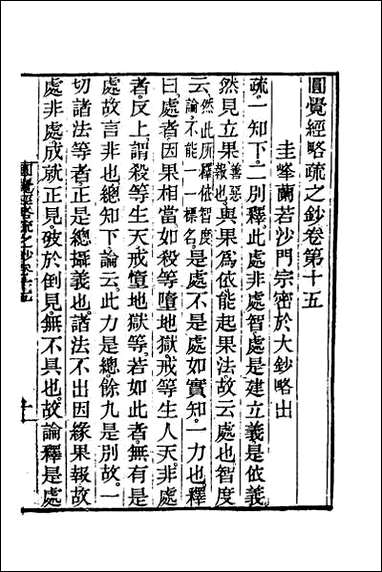 圓覺經略疏之鈔卷第十五
圭峯蘭若沙門宗密於大鈔略出
疏一知下二別釋此處非處智處是建立義是依義
然見立果善惡報也與果為依能起果法故云處也智度
云然此所釋依智度論不一一標名是處不是處如實知一力也釋
曰處者因果相當如殺等墮地獄戒等生人天非處
者反上謂殺等生天戒墮地獄等若如此者無有是
處故言非也總知下論云此力是總餘九是別故一
切諸法等者正是總攝義也諸法不出因緣果報故
處非處成就正見破於倒見無不具也故論釋是處